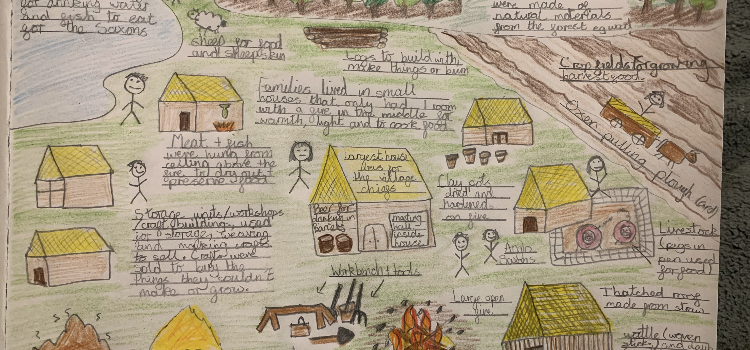 for drinking water
and fish to eat
for the Saxons
sheep for food
and sheepskin
Logs to build with,
make things or burn
were made of
natural materials
from the forest
Crop fields for growing
harvest food.
Oxen pulling plough (ard)
Families lived in small
houses that only had 1 room
with a fire in the middle for
warmth, light and to cook food
Meat + fish
were hung from
ceiling above the
fire to dry out +
preserve food
Largest house
was for
the village
chiefs
beer for
drinking in
barrels
meeting
hall
inside
house
Clay pots
dried and
hardened
on fire
Anglo
Saxons
Livestock
(pigs in
pen used
for food)
Storage units/workshops
/craft building used
for storage, weaving
and making crafts
to sell. Crafts were
sold to buy the
things they couldn't
make or grow.
Workbench + tools
Large open
fire
Thatched roofs
made from straw
wattle (woven
sticks) and daub